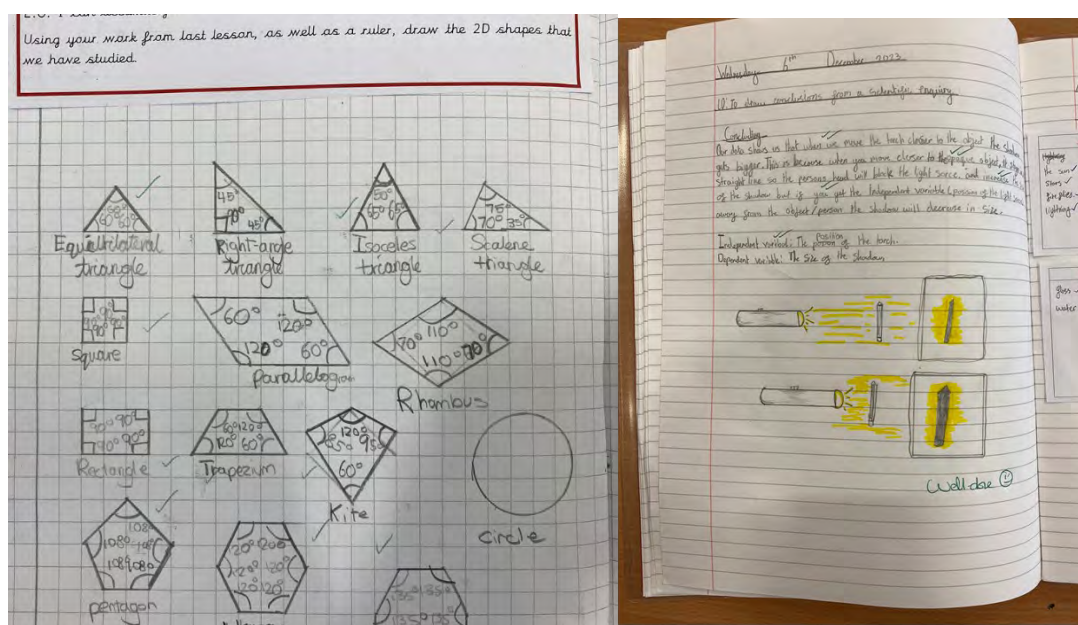 Using your work from last lesson, as well as a ruler, draw the 2D shapes that
we have studied.
60° 60° 60°
45°
90° 45°
50°
65° 65°
75°
70° 35°
Equilhilateral
triangle
Right-angle
triangle
Isoceles
triangle
Scalene
triangle
90° 90°
90° 90°
60° 120°
120° 60°
110°
70° 70°
110°
Square
Parallelogram
Rhombus
90° 90°
90° 90°
120°
120° 60°
120°
95°
60°
Rectangle
Trapezium
Kite
circle
108°
108° 108°
108° 108°
120° 120°
120° 120°
120° 120°
135° 135°
135° 135°
pentagon
Wednesday 6th December 2023
LO: To draw conclusions from a scientific enquiry
Concluding
Our data shows us that when we move the torch closer to the object the shadow
gets bigger. This is because when you move closer to the opaque object, it
straight line so the persons head will block the light source and increase
of the shadow but if you get the Independent variable (position of the light source
away from the object/person the shadow will decrease in size.
Independent variable: The position of the torch.
Dependent variable: The size of the shadow
Well done
the sun
stars
fire flies
lightning
glass
water